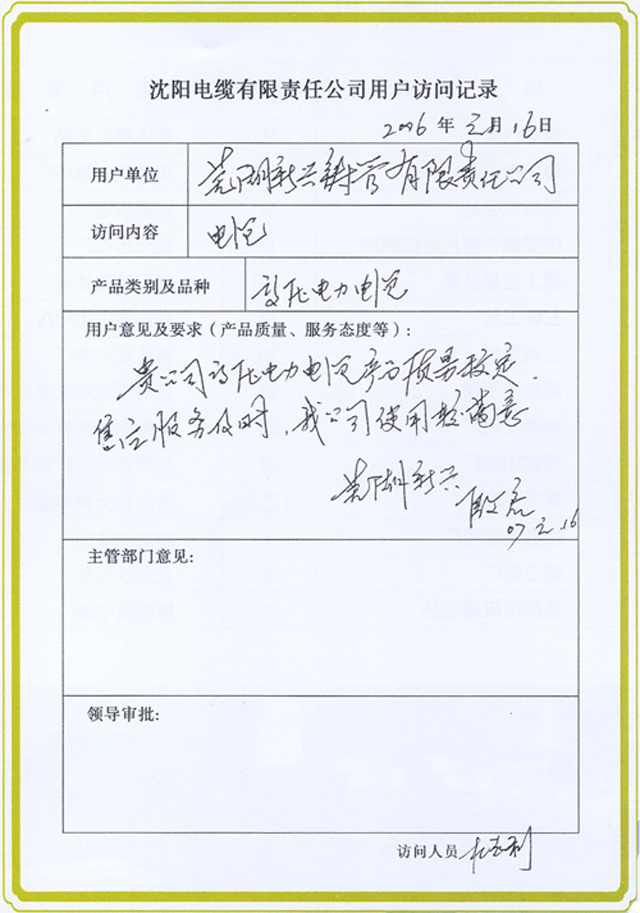 沈阳电缆有限责任公司用户访问记录
2006 年 2 月 16 日
用户单位 芜湖新兴铸管有限责任公司
访问内容 电缆
产品类别及品种 高压电力电缆
用户意见及要求（产品质量、服务态度等）：
贵公司高压电力电缆产品质量稳定，
售后服务及时，我公司使用较满意
芜湖新兴
07 2 16
主管部门意见：
领导审批：
访问人员